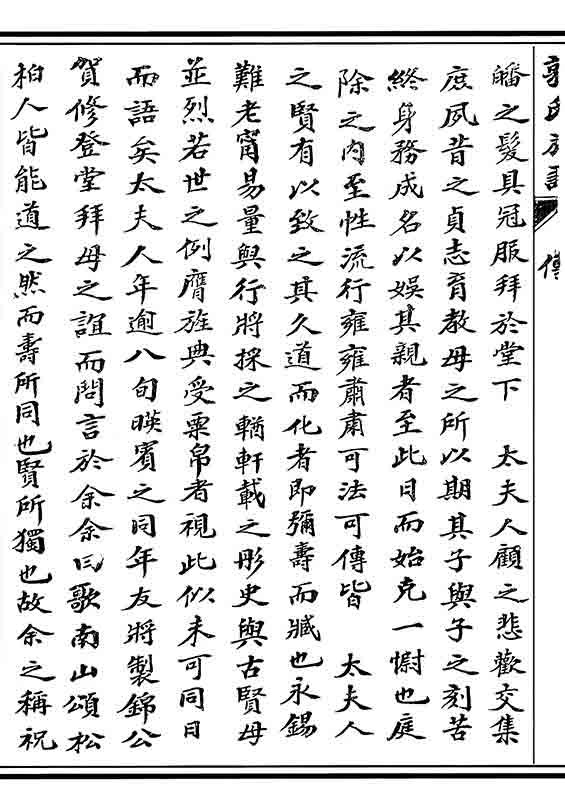 郭氏族譜 傳
皤之髮具冠服拜於堂下 太夫人顧之悲歡交集
庶夙昔之貞志育教母之所以期其子與子之刻苦
終身務成名以娛其親者至此日而始克一慰也庭
除之內至性流行雍雍肅肅可法可傳皆 太夫人
之賢有以致之其久道而化者即彌壽而臧也永錫
難老甯易量與行將採之輶軒載之彤史與古賢母
並烈若世之例膺旌典受粟帛者視此似未可同日
而語矣太夫人年逾八旬暎賓之同年友將製錦公
賀修登堂拜母之誼而問言於余余曰歌南山頌松
柏人皆能道之然而壽所同也賢所獨也故余之稱祝